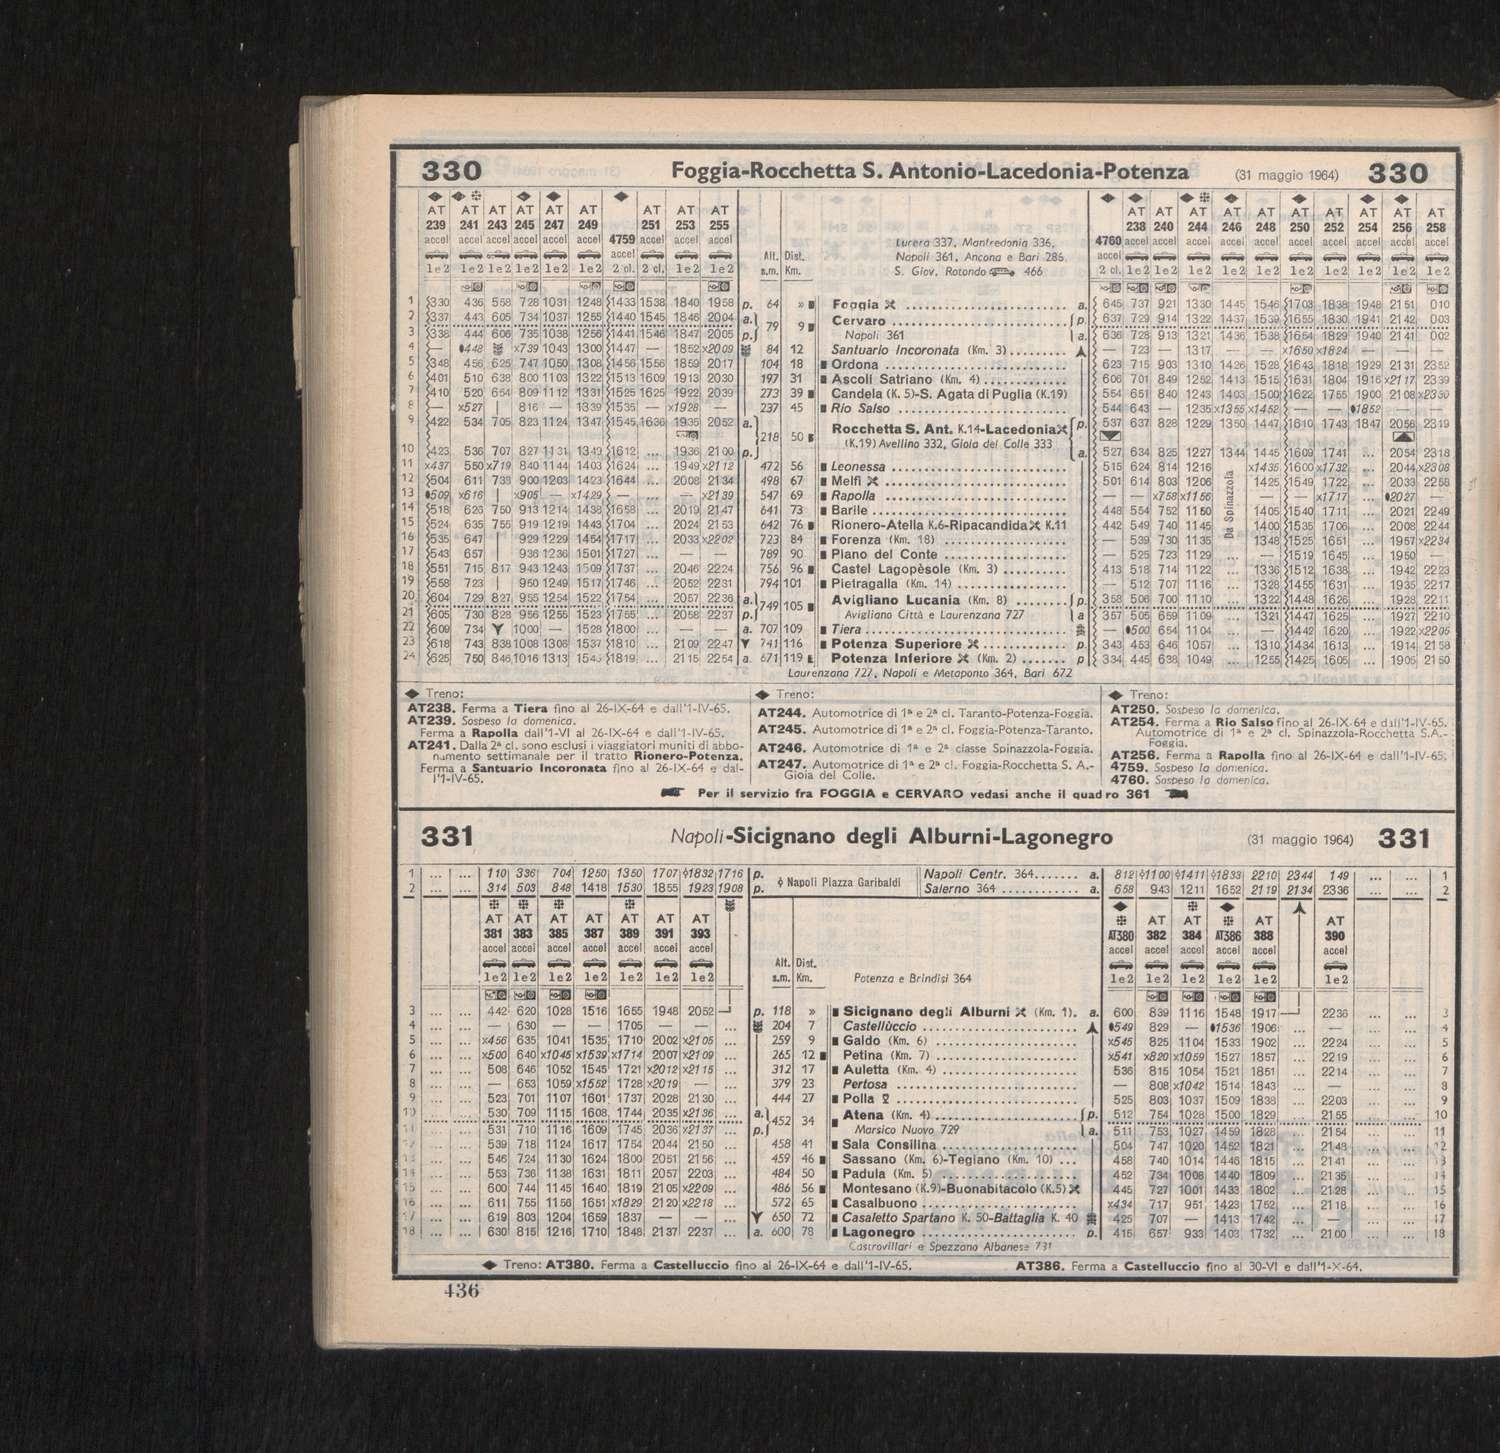 330 Foggia-Rocchetta S. Antonio-Lacedonia-Potenza (31 maggio 1964) 330
AT AT AT AT AT AT AT AT AT
239 241 243 245 247 249 4759 251 253 255
accel accel accel accel accel accel accel accel accel accel
1e2 1e2 1e2 1e2 1e2 1e2 2 cl. 2 cl. 1e2 1e2
Alt. s.m. Dist. Km.
Lucera 337, Manfredonia 336,
Napoli 361, Ancona e Bari 286,
S. Giov. Rotondo 466
AT AT AT AT AT AT AT AT AT AT
4760 238 240 244 246 248 250 252 254 256 258
accel accel accel accel accel accel accel accel accel accel accel
2 cl. 1e2 1e2 1e2 1e2 1e2 1e2 1e2 1e2 1e2 1e2
1 330 436 558 728 1031 1248 1433 1538 1840 1958 p. 64 » Foggia a. 645 737 921 1330 1445 1546 1703 1838 1948 2151 010
2 337 443 605 734 1037 1255 1440 1545 1846 2004 a. 79 9 Cervaro p. 637 729 914 1322 1437 1539 1655 1830 1941 2142 003
3 338 444 606 735 1038 1256 1441 1546 1847 2005 p. Napoli 361 a. 636 728 913 1321 1436 1538 1654 1829 1940 2141 002
4 — 448 x739 1043 1300 1447 — 1852 x2009 84 12 Santuario Incoronata (Km. 3) — 723 — 1317 — — x1650 x1824 — — —
5 348 456 625 747 1050 1308 1456 1556 1859 2017 104 18 Ordona 623 715 903 1310 1426 1528 1643 1818 1929 2131 2352
6 401 510 638 800 1103 1322 1513 1609 1913 2030 197 31 Ascoli Satriano (Km. 4) 606 701 849 1252 1413 1515 1631 1804 1916 x2117 2339
7 410 520 654 809 1112 1331 1525 1625 1922 2039 273 39 Candela (K. 5)-S. Agata di Puglia (K.19) 554 651 840 1243 1403 1500 1622 1755 1900 2108 x2330
8 — x527 | 816 — 1339 1535 — x1928 — 237 45 Rio Salso 544 643 — 1235 x1355 x1452 — — 1852 — —
9 422 534 705 823 1124 1347 1545 1636 1935 2052 a. 218 50 Rocchetta S. Ant. K.14-Lacedonia p. 537 637 828 1229 1350 1447 1610 1743 1847 2056 2319
(K.19) Avellino 332, Gioia del Colle 333
10 423 536 707 827 1131 1349 1612 ... 1936 2100 p. a. 527 634 825 1227 1344 1445 1609 1741 ... 2054 2318
Da Spinazzola
11 x437 550 x719 840 1144 1403 1624 ... 1949 x2112 472 56 Leonessa 515 624 814 1216 x1435 1600 x1732 ... 2044 x2308
12 504 611 738 900 1203 1423 1644 ... 2008 2134 498 67 Melfi 501 614 803 1206 1425 1549 1722 ... 2033 2258
13 509 x616 | x905 — x1429 — ... — x2139 547 69 Rapolla — — x758 x1156 — — x1717 ... 2027 —
14 518 626 750 913 1214 1438 1658 ... 2019 2147 641 73 Barile 448 554 752 1150 1405 1540 1711 ... 2021 2249
15 524 635 755 919 1219 1443 1704 ... 2024 2153 642 76 Rionero-Atella K.6-Ripacandida K.11 442 549 740 1145 1400 1535 1706 ... 2008 2244
16 535 647 | 929 1229 1454 1717 ... 2033 x2202 723 84 Forenza (Km. 18) — 539 730 1135 1348 1525 1651 ... 1957 x2234
17 543 657 | 936 1236 1501 1727 ... — — 789 90 Piano del Conte — 525 723 1129 ... — 1519 1645 ... 1950 —
18 551 715 817 943 1243 1509 1737 ... 2046 2224 756 96 Castel Lagopèsole (Km. 3) 413 518 714 1122 ... 1336 1512 1638 ... 1942 2223
19 558 723 | 950 1249 1517 1746 ... 2052 2231 794 101 Pietragalla (Km. 14) — 512 707 1116 ... 1328 1455 1631 ... 1935 2217
20 604 729 827 955 1254 1522 1754 ... 2057 2236 a. 749 105 Avigliano Lucania (Km. 8) p. 358 506 700 1110 ... 1322 1448 1626 ... 1928 2211
21 605 730 828 956 1255 1523 1755 ... 2058 2237 p. Avigliano Città e Laurenzana 727 a 357 505 659 1109 ... 1321 1447 1625 ... 1927 2210
22 609 734 1000 — 1528 1800 ... — — a. 707 109 Tiera — 500 654 1104 ... — 1442 1620 ... 1922 x2205
23 618 743 838 1008 1306 1537 1810 ... 2109 2247 741 116 Potenza Superiore p 343 453 646 1057 ... 1310 1434 1613 ... 1914 2158
24 625 750 846 1016 1313 1545 1819 ... 2115 2254 a. 671 119 Potenza Inferiore (Km. 2) p 334 445 638 1049 ... 1255 1425 1605 ... 1905 2150
Laurenzana 727, Napoli e Metaponto 364, Bari 672
◆ Treno:
AT238. Ferma a Tiera fino al 26-IX-64 e dall'1-IV-65.
AT239. Sospeso la domenica.
Ferma a Rapolla dall'1-VI al 26-IX-64 e dall'1-IV-65.
AT241. Dalla 2ª cl. sono esclusi i viaggiatori muniti di abbo-
namento settimanale per il tratto Rionero-Potenza.
Ferma a Santuario Incoronata fino al 26-IX-64 e dal-
l'1-IV-65.
◆ Treno:
AT244. Automotrice di 1ª e 2ª cl. Taranto-Potenza-Foggia.
AT245. Automotrice di 1ª e 2ª cl. Foggia-Potenza-Taranto.
AT246. Automotrice di 1ª e 2ª classe Spinazzola-Foggia.
AT247. Automotrice di 1ª e 2ª cl. Foggia-Rocchetta S. A.-
Gioia del Colle.
◆ Treno:
AT250. Sospeso la domenica.
AT254. Ferma a Rio Salso fino al 26-IX-64 e dall'1-IV-65.
Automotrice di 1ª e 2ª cl. Spinazzola-Rocchetta S.A.-
Foggia.
AT256. Ferma a Rapolla fino al 26-IX-64 e dall'1-IV-65.
4759. Sospeso la domenica.
4760. Sospeso la domenica.
Per il servizio fra FOGGIA e CERVARO vedasi anche il quadro 361
331 Napoli-Sicignano degli Alburni-Lagonegro (31 maggio 1964) 331
1 ... ... 110 336 704 1250 1350 1707 ◊1832 1716 p. ◊ Napoli Piazza Garibaldi Napoli Centr. 364 a. 812 ◊1100 ◊1411 ◊1833 2210 2344 149 ... ... 1
2 ... ... 314 503 848 1418 1530 1855 1923 1908 p. Salerno 364 a. 658 943 1211 1652 2119 2134 2336 ... ... 2
AT AT AT AT AT AT AT
381 383 385 387 389 391 393
accel accel accel accel accel accel accel
1e2 1e2 1e2 1e2 1e2 1e2 1e2
Alt. s.m. Dist. Km.
Potenza e Brindisi 364
AT380 AT 382 AT 384 AT386 AT 388 AT 390
accel accel accel accel accel accel
1e2 1e2 1e2 1e2 1e2 1e2
3 ... ... 442 620 1028 1516 1655 1948 2052 p. 118 » Sicignano degli Alburni (Km. 1). a. 600 839 1116 1548 1917 2236 ... ... 3
4 ... ... — 630 — — 1705 — — ... 204 7 Castellùccio 549 829 — 1536 1906 ... — ... ... 4
5 ... ... x456 635 1041 1535 1710 2002 x2105 ... 259 9 Galdo (Km. 6) x545 825 1104 1533 1902 ... 2224 ... ... 5
6 ... ... x500 640 x1045 x1539 x1714 2007 x2109 ... 265 12 Petina (Km. 7) x541 x820 x1059 1527 1857 ... 2219 ... ... 6
7 ... ... 508 646 1052 1545 1721 x2012 x2115 ... 312 17 Auletta (Km. 4) 536 815 1054 1521 1851 ... 2214 ... ... 7
8 ... ... — 653 1059 x1552 1728 x2019 — ... 379 23 Pertosa — 808 x1042 1514 1843 ... — ... ... 8
9 ... ... 523 701 1107 1601 1737 2028 2130 ... 444 27 Polla 525 803 1037 1509 1838 ... 2203 ... ... 9
10 ... ... 530 709 1115 1608 1744 2035 x2136 ... a. 452 34 Atena (Km. 4) p. 512 754 1028 1500 1829 ... 2155 ... ... 10
11 ... ... 531 710 1116 1609 1745 2036 x2137 ... p. Marsico Nuovo 729 a. 511 753 1027 1459 1828 ... 2154 ... ... 11
12 ... ... 539 718 1124 1617 1754 2044 2150 ... 458 41 Sala Consilina 504 747 1020 1452 1821 ... 2148 ... ... 12
13 ... ... 546 724 1130 1624 1800 2051 2156 ... 459 46 Sassano (Km. 6)-Tegiano (Km. 10) ... 458 740 1014 1446 1815 ... 2141 ... ... 13
14 ... ... 553 736 1138 1631 1811 2057 2203 ... 484 50 Padula (Km. 5) 452 734 1008 1440 1809 ... 2135 ... ... 14
15 ... ... 600 744 1145 1640 1819 2105 x2209 ... 486 56 Montesano (K.9)-Buonabitacolo (K.5) 445 727 1001 1433 1802 ... 2128 ... ... 15
16 ... ... 611 755 1156 1651 x1829 2120 x2218 ... 572 65 Casalbuono x434 717 951 1423 1752 ... 2118 ... ... 16
17 ... ... 619 803 1204 1659 1837 — — ... 650 72 Casaletto Spartano K. 50-Battaglia K. 40 425 707 — 1413 1742 ... — ... ... 17
18 ... ... 630 815 1216 1710 1848 2137 2237 ... a. 600 78 Lagonegro p. 415 657 933 1403 1732 ... 2100 ... ... 18
Castrovillari e Spezzano Albanese 731
◆ Treno: AT380. Ferma a Castelluccio fino al 26-IX-64 e dall'1-IV-65. AT386. Ferma a Castelluccio fino al 30-VI e dall'1-X-64.
436